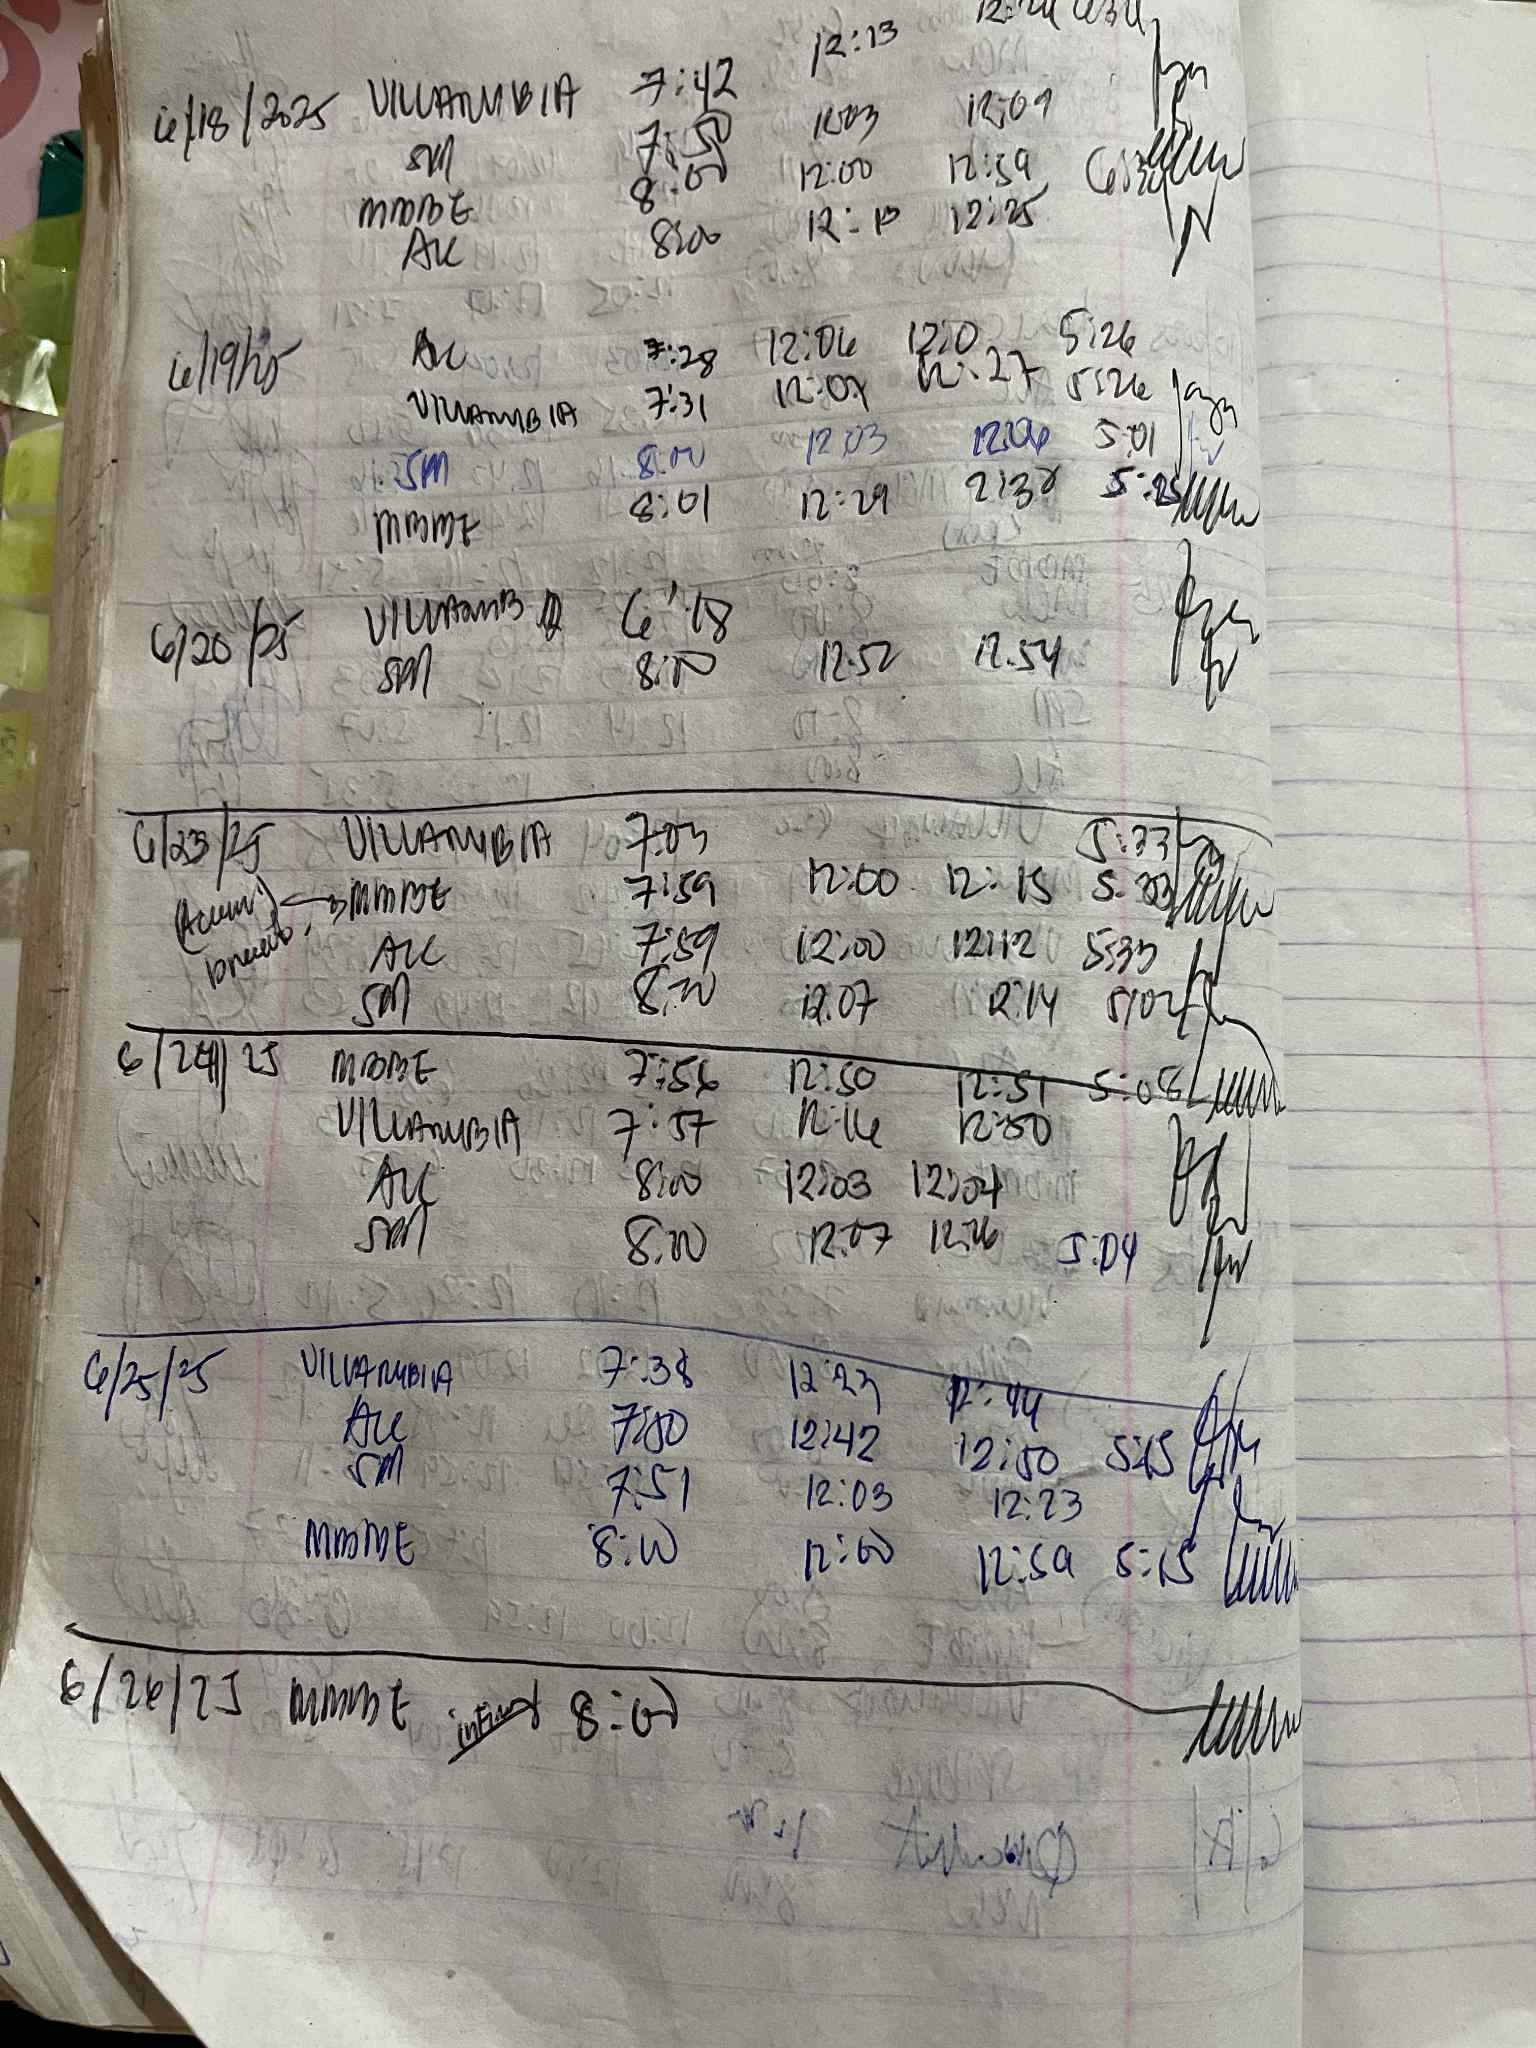 12:13
6/18/2025 VILLARUBIA 7:42
SM 7:50 12:03 12:09
MMBE 8:00 12:00 12:59
ALC 8:00 12:10 12:25
6/19/25 ALC 7:28 12:06 5:26
VILLARUBIA 7:31 12:07 12:27 5:26
SM 8:00 12:03 12:06 5:01
MMBE 8:01 12:29 5:25
6/20/25 VILLARUB 6:18
SM 8:00 12:52 12:54
6/23/25 VILLARUBIA 7:03 5:33
MMBE 7:59 12:00 12:15 5:33
ALC 7:59 12:00 12:12 5:33
SM 8:00 12:07 12:14 5:02
6/24/25 MMBE 7:56 12:50 12:51 5:08
VILLARUBIA 7:57 12:16 12:50
ALC 8:00 12:03 12:04
SM 8:00 12:07 12:26 5:04
6/25/25 VILLARUBIA 7:38 12:23 12:44
ALC 7:50 12:42 12:50 5:15
SM 7:51 12:03 12:23
MMBE 8:00 12:00 12:59 5:15
6/26/25 MMBE 8:00